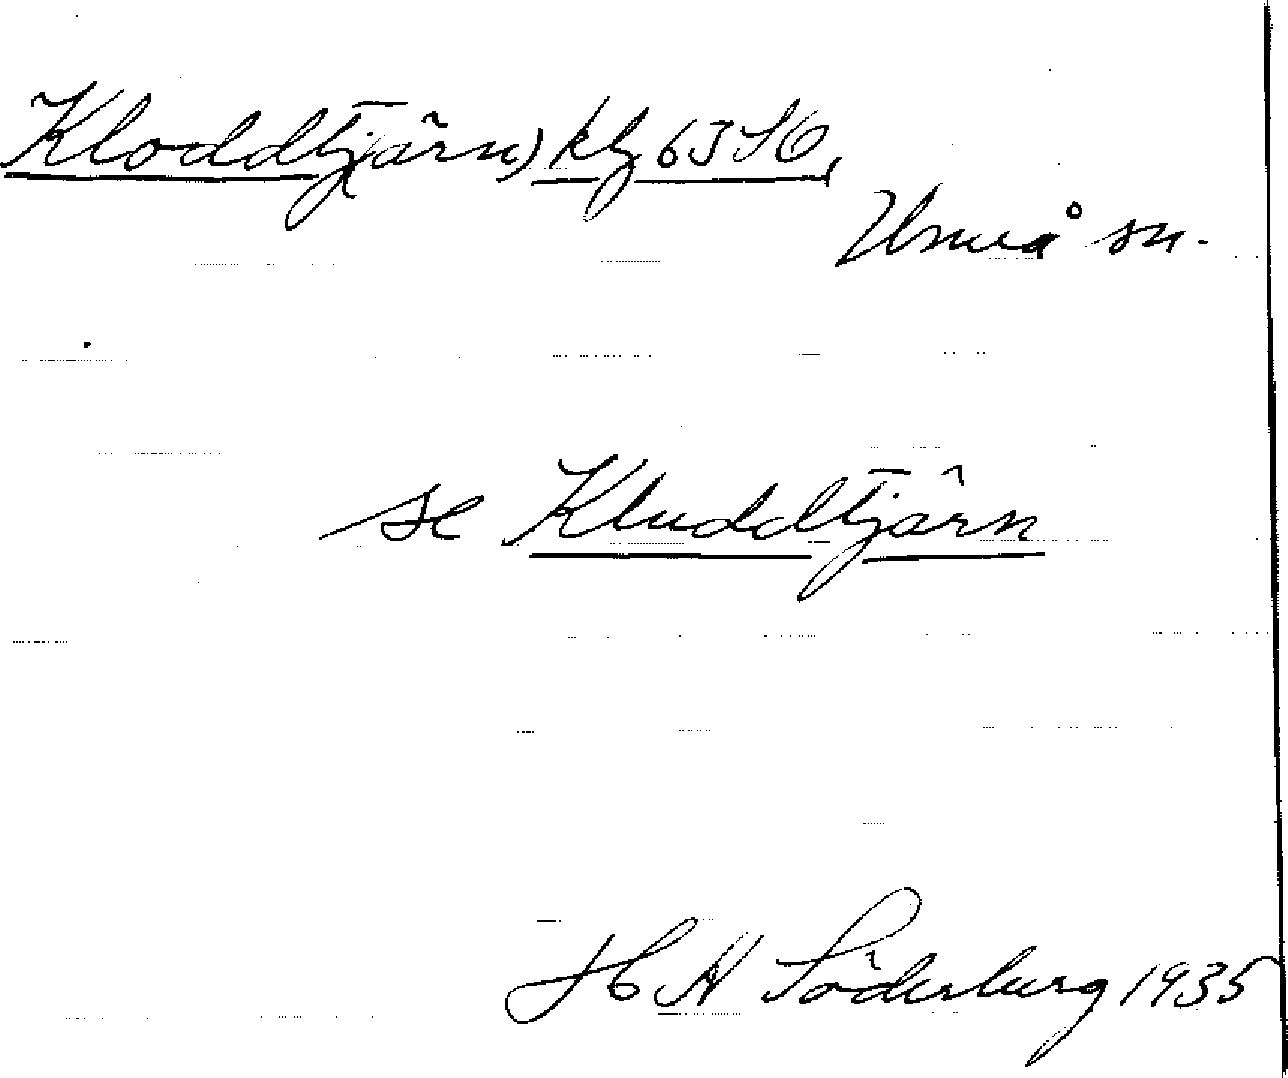 Klodd(tjärn) kfg 63 S6,
Umeå sn.
se Kluddtjärn
H A Söderberg 1935